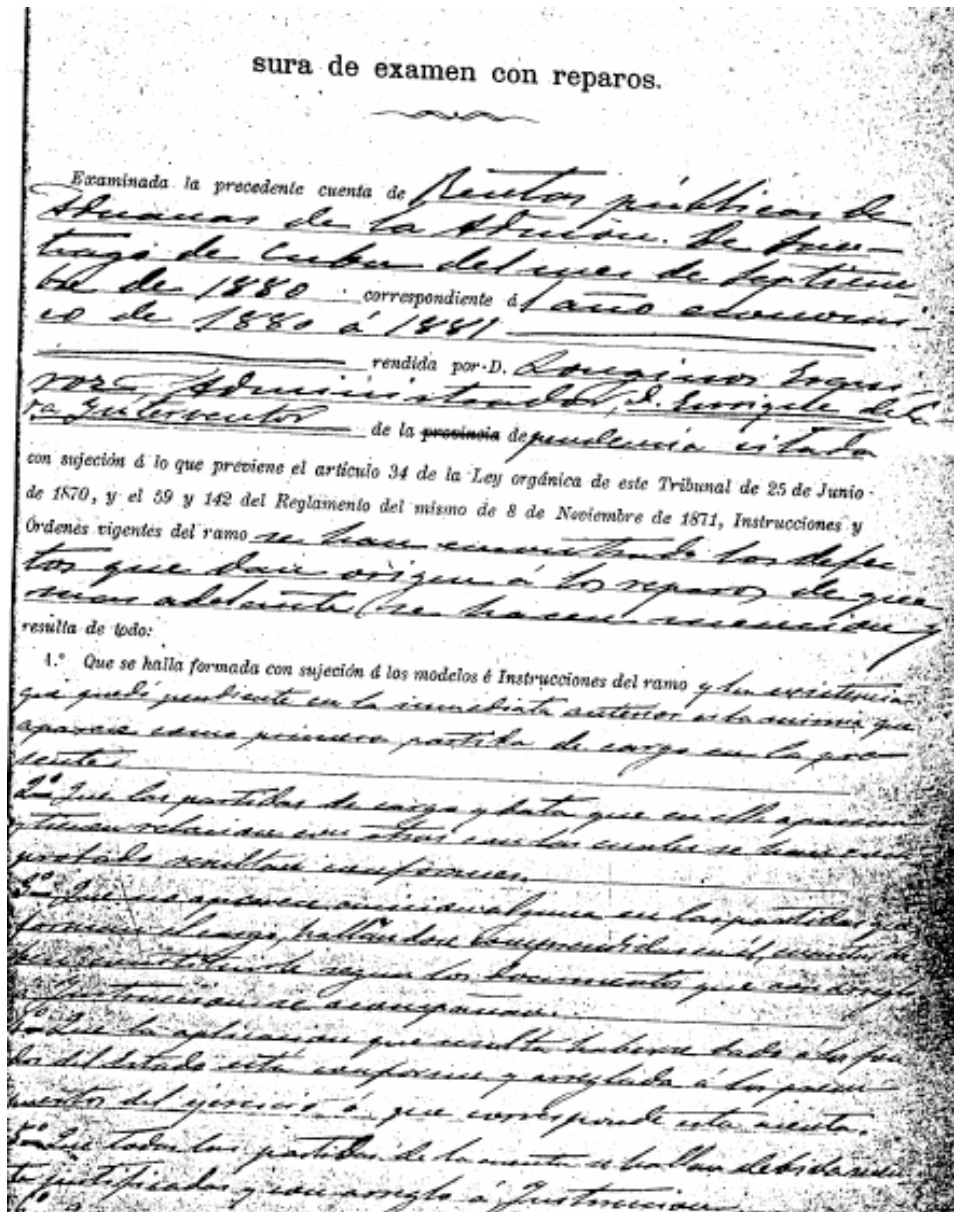 sura de examen con reparos.
Examinada la precedente cuenta de Rentas públicas de
Aduanas de la Admión. de San-
tiago de Cuba del mes de Septiem-
bre de 1880 correspondiente á l año económi-
co de 1880 á 1881
rendida por D. Longinos
Administrador, D. Enrique de
Interventor de la provincia dependencia citada
con sujeción á lo que previene el artículo 34 de la Ley orgánica de este Tribunal de 25 de Junio
de 1870, y el 59 y 142 del Reglamento del mismo de 8 de Noviembre de 1871, Instrucciones y
Órdenes vigentes del ramo se han encontrado los defec-
tos que dan origen á los reparos de que
mas adelante se hacen mencion y
resulta de todo:
1.º Que se halla formada con sujeción á los modelos é Instrucciones del ramo y la existencia
que quedó pendiente en la inmediata anterior es la misma que
aparece como primera partida de cargo en la pre-
sente.
2º Que las partidas de cargo y data que en ella aparecen
y tienen relacion con otras con las cuales se han com
probado resultan conformes.
3º Que no aparece omision alguna en las partidas q
forman el cargo, hallándose comprendidas en él, cuantas
segun los documentos que con
Instruccion se acompañan.
Que la aplicacion que resulta haberse dado á los fon
dos del Estado está conforme y arreglada á los presu
puestos del ejercicio á que corresponde esta cuenta.
5º Que todas las partidas de la cuenta se hallan debidamen
te justificadas y con arreglo á Instruccion